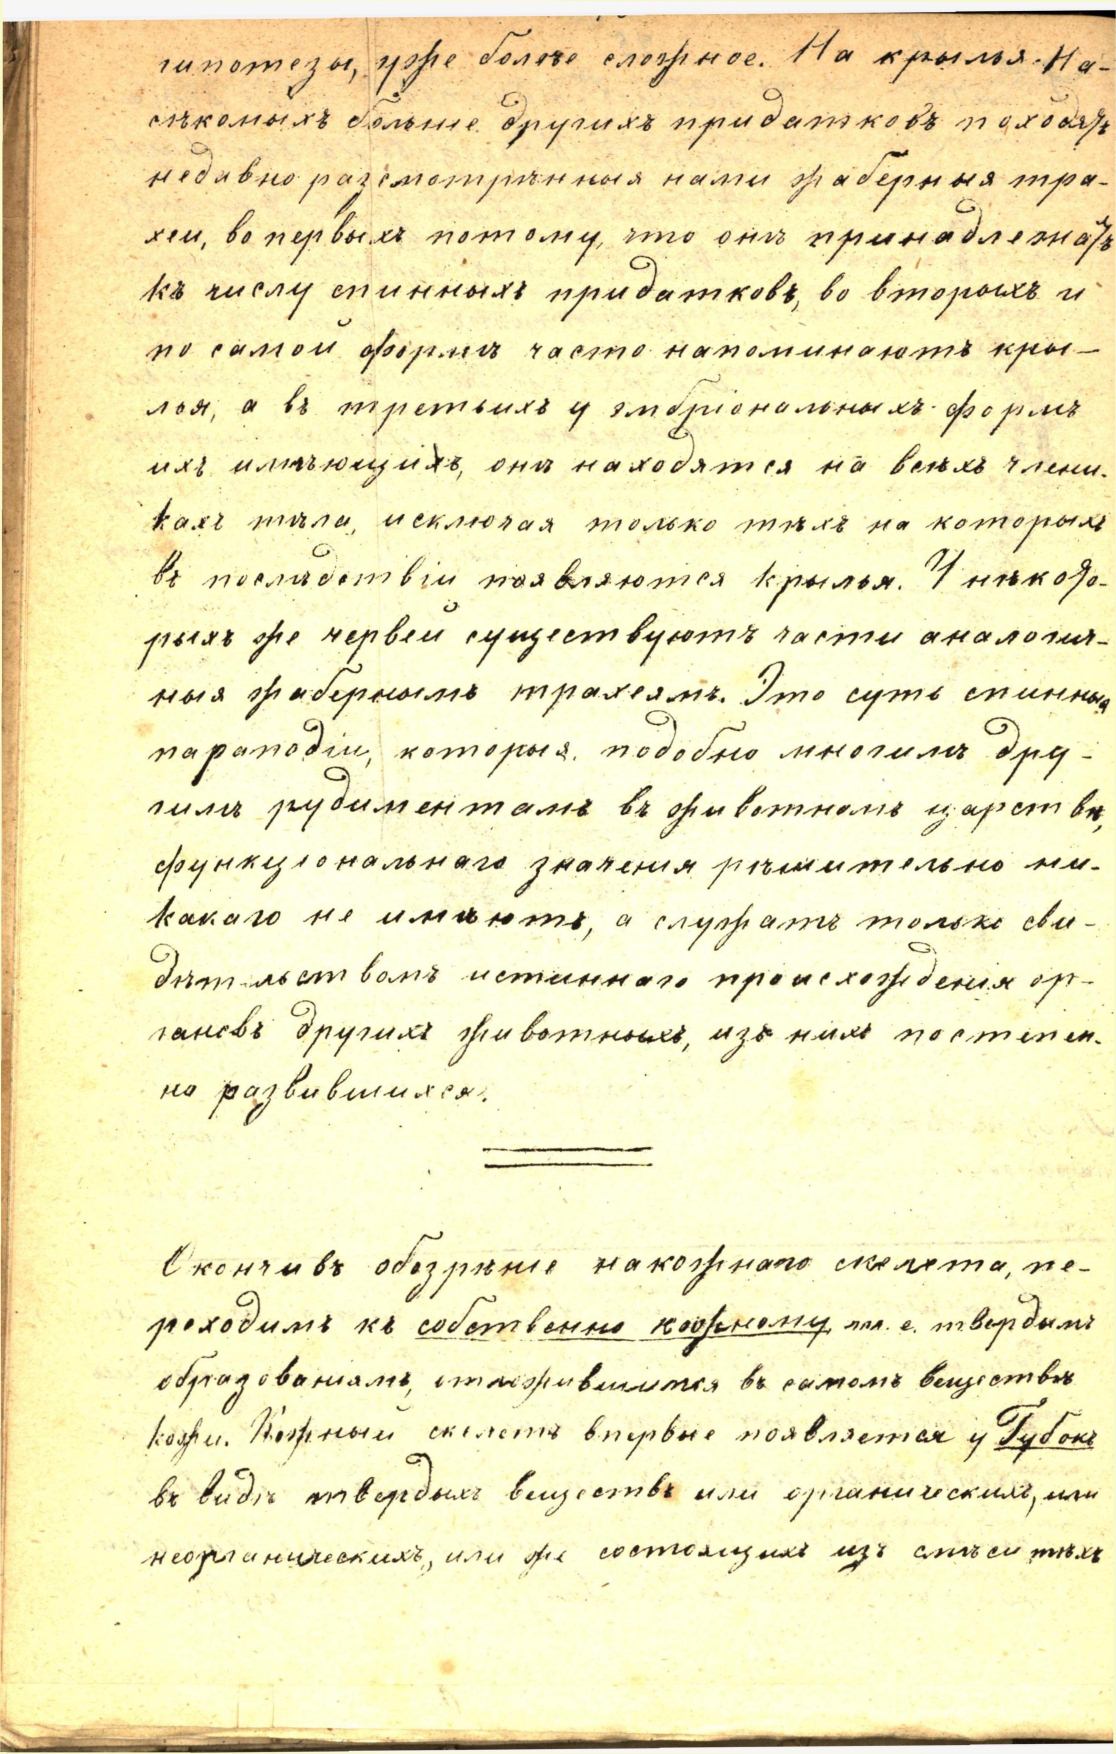 гипотезы, уже болѣе сложное. На крылья На-
сѣкомыхъ больше другихъ придатковъ походятъ
недавно разсмотрѣнныя нами жаберныя тра-
хеи, во первыхъ потому, что онѣ принадлежатъ
къ числу спинныхъ придатковъ, во вторыхъ и
по самой формѣ часто напоминаютъ кры-
лья, а въ третьихъ у эмбріональныхъ формъ
ихъ имѣющихъ, онѣ находятся на всѣхъ члени-
кахъ тѣла, исключая только тѣхъ на которыхъ
въ послѣдствіи появляются крылья. У нѣкото-
рыхъ же червей существуютъ части аналогич-
ныя жабернымъ трахеямъ. Это суть спинныя
параподіи, которыя подобно многимъ дру-
гимъ рудиментамъ въ животномъ царствѣ,
функціональнаго значенія рѣшительно ни-
какаго не имѣютъ, а служатъ только сви-
дѣтельствомъ истиннаго происхожденія ор-
гановъ другихъ животныхъ, изъ нихъ постепен-
но развившихся.
Окончивъ обозрѣніе накожнаго скелета, пе-
реходимъ къ собственно кожному т. е. твердымъ
образованіямъ, отложившимся въ самомъ веществѣ
кожи. Кожный скелетъ впервые появляется у Губокъ
въ видѣ твердыхъ веществъ или органическихъ, или
неорганическихъ, или же состоящихъ изъ смѣси тѣхъ